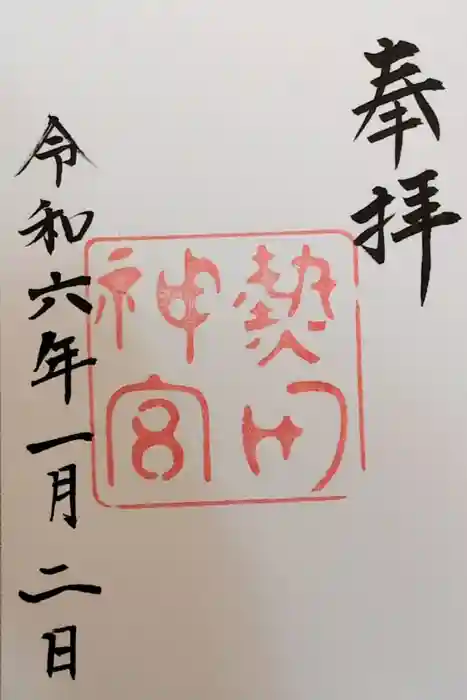 奉拝
熱田
神宮
令和六年一月二日